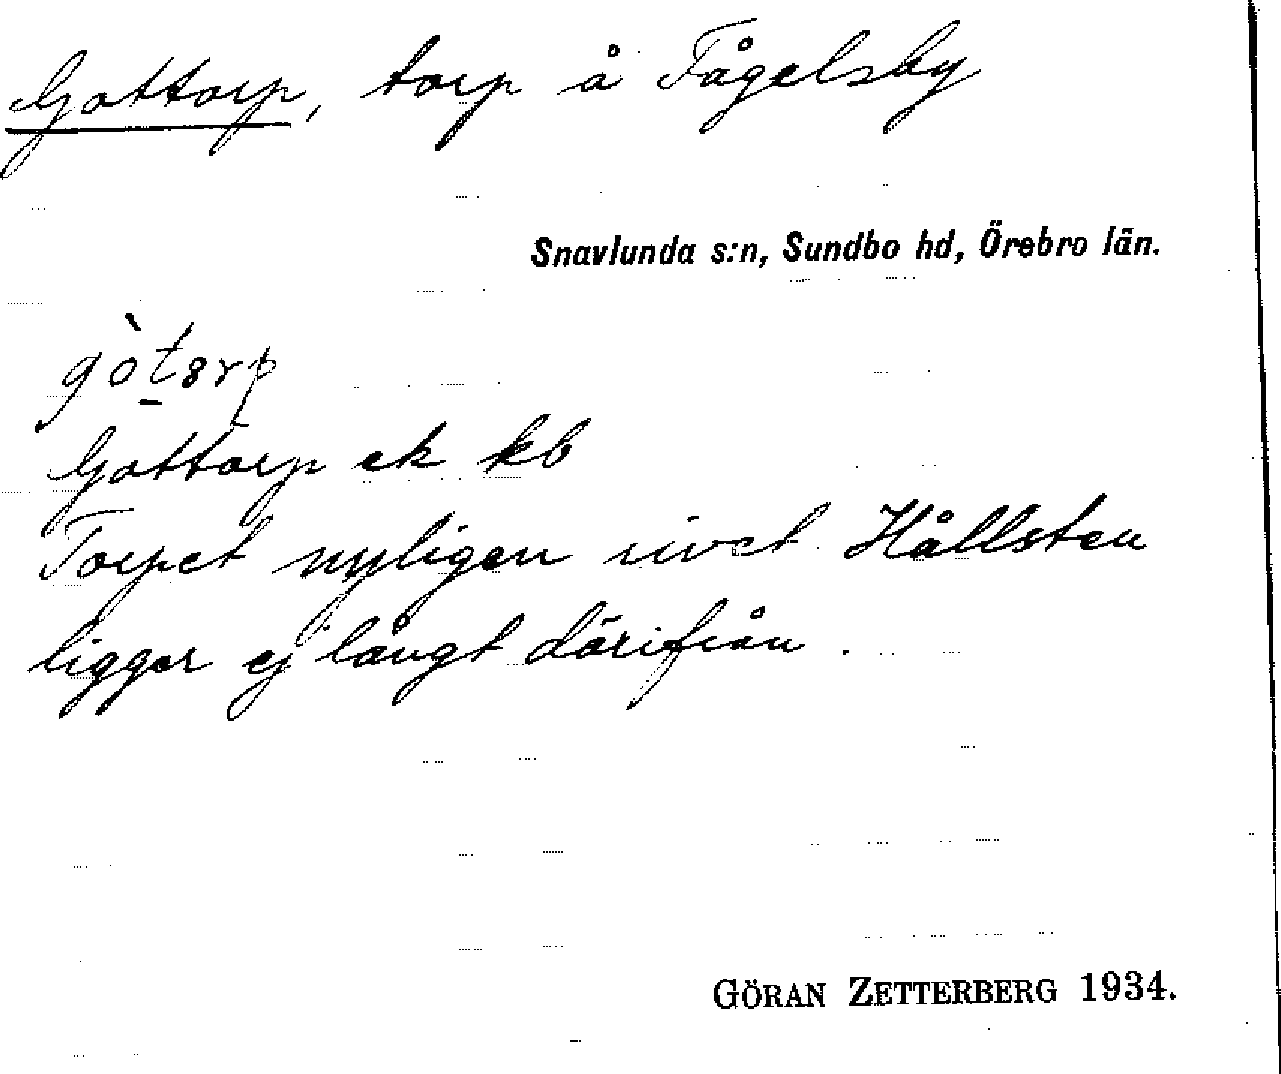 Gottorp, torp å Fågelsby
Snavlunda s:n, Sundbo hd, Örebro län.
gòt̠ɜrp
Gottorp ek kb
Torpet nyligen rivet. Hållsten
ligger ej långt därifrån.
GÖRAN ZETTERBERG 1934.